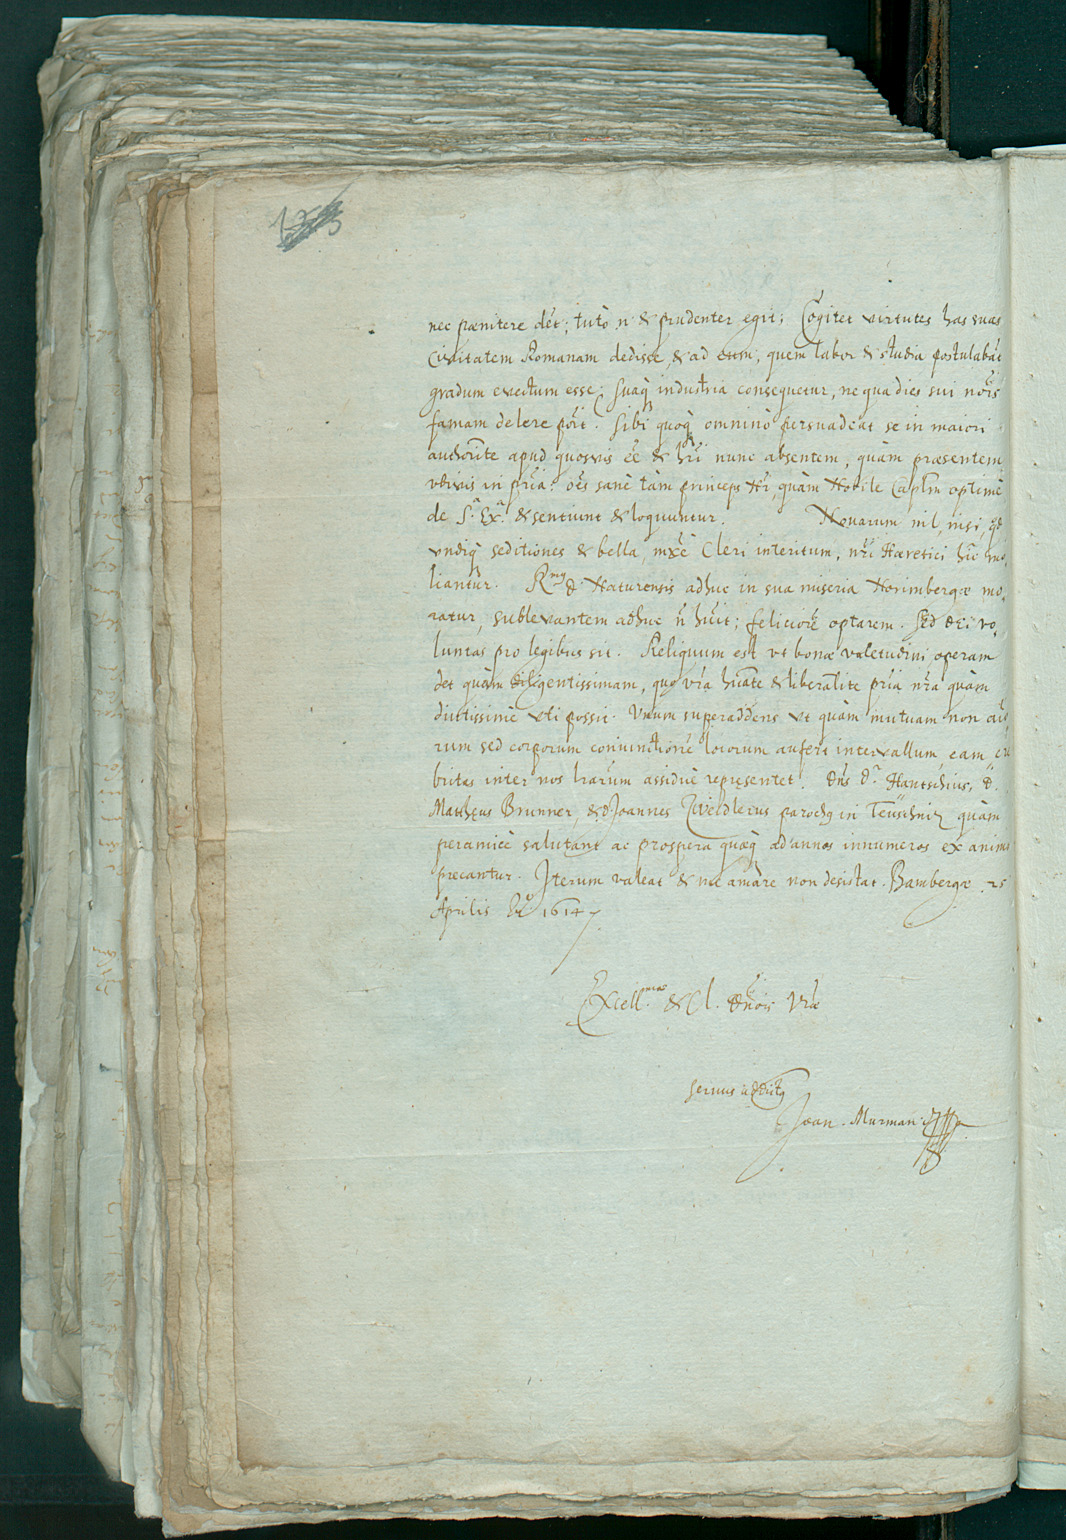 nec pœnitere dēt; tutò n̄ & prudenter egit; Cogitet virtutes has suas
Civitatem Romanam dedisse, & ad eum, quem labor & studia postulabāt
gradum evectum esse; suaq; industria consequetur, ne qua dies sui nōis
famam delere pōit. Sibi quoq; omnino persuadeat se in maiori
authorite apud quosvis eē & hri nunc absentem, quàm præsentem
in pria: oēs sanè tàm princeps Nr, quàm Nobile Caplm optimè
de S. Ex. & sentiunt & loquuntur. Nouarum nil, nisi, qd
vndiq; seditiones & bella, mxē Cleri interitum, nri Hæretici hic mo
liantur. Rmus D. Naturensis adhuc in sua miseria Norimbergæ mo,
ratur, sublevantem adhuc n̄ huit; feliciorē optarem. Sed Dei vo,
luntas pro legibus sit. Reliquum est vt bonæ valetudini operam
det quàm diligentissimam, quo vrā huāte & liberalite pria nra quàm
diutissimè vti possit. Vnum superaddens vt quàm mutuam non aīo
rum sed corporum coniunctionē locorum aufert intervallum, eam cre
britas inter nos lrarum assiduè repręsentet. Dns Dr. Hantschius, D.
Mathęus Brunner, & D. Joannes Zweidlerus parochus in Teuschnitz quàm
peramicè salutant ac prospera quæq; ad annos innumeros ex animo
precantur. Iterum valeat & me amàre non desistat. Bambergæ 25
Aprilis Ao. 1614
Excell.mae & Cl. Dnois Vræ
servus addictus
Joan. Murman